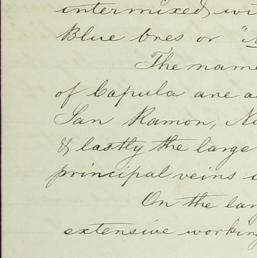 intermixed wi
Blue ores or "N
The name
of Capula are a
San Ramon, Na
& lastly the large
principal veins
On the lar
extensive working